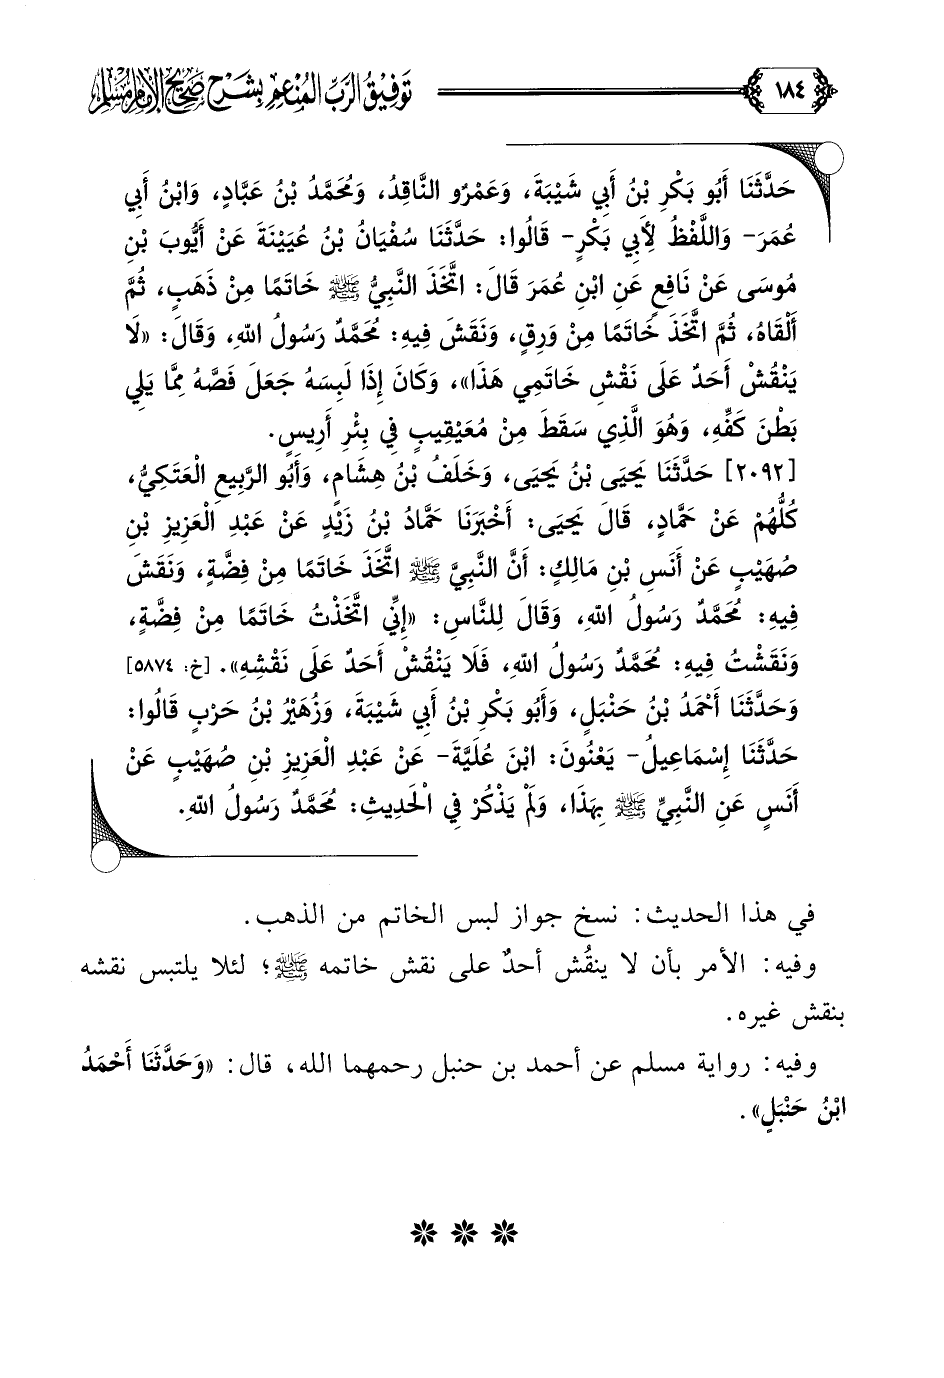 ١٨٤ توفيق الرب المنعم بشرح صحيح الإمام مسلم
حَدَّثَنَا أَبُو بَكْرِ بْنُ أَبِي شَيْبَةَ، وَعَمْرٌو النَّاقِدُ، وَمُحَمَّدُ بْنُ عَبَّادٍ، وَابْنُ أَبِي
عُمَرَ- وَاللَّفْظُ لِأَبِي بَكْرٍ- قَالُوا: حَدَّثَنَا سُفْيَانُ بْنُ عُيَيْنَةَ عَنْ أَيُّوبَ بْنِ
مُوسَى عَنْ نَافِعٍ عَنِ ابْنِ عُمَرَ قَالَ: اتَّخَذَ النَّبِيُّ ﷺ خَاتَمًا مِنْ ذَهَبٍ، ثُمَّ
أَلْقَاهُ، ثُمَّ اتَّخَذَ خَاتَمًا مِنْ وَرِقٍ، وَنَقَشَ فِيهِ: مُحَمَّدٌ رَسُولُ اللهِ، وَقَالَ: «لَا
يَنْقُشْ أَحَدٌ عَلَى نَقْشِ خَاتَمِي هَذَا»، وَكَانَ إِذَا لَبِسَهُ جَعَلَ فَصَّهُ مِمَّا يَلِي
بَطْنَ كَفِّهِ، وَهُوَ الَّذِي سَقَطَ مِنْ مُعَيْقِيبٍ فِي بِئْرِ أَرِيسٍ.
[٢٠٩٢] حَدَّثَنَا يَحْيَى بْنُ يَحْيَى، وَخَلَفُ بْنُ هِشَامٍ، وَأَبُو الرَّبِيعِ الْعَتَكِيُّ،
كُلُّهُمْ عَنْ حَمَّادٍ، قَالَ يَحْيَى: أَخْبَرَنَا حَمَّادُ بْنُ زَيْدٍ عَنْ عَبْدِ الْعَزِيزِ بْنِ
صُهَيْبٍ عَنْ أَنَسِ بْنِ مَالِكٍ: أَنَّ النَّبِيَّ ﷺ اتَّخَذَ خَاتَمًا مِنْ فِضَّةٍ، وَنَقَشَ
فِيهِ: مُحَمَّدٌ رَسُولُ اللهِ، وَقَالَ لِلنَّاسِ: «إِنِّي اتَّخَذْتُ خَاتَمًا مِنْ فِضَّةٍ،
وَنَقَشْتُ فِيهِ: مُحَمَّدٌ رَسُولُ اللهِ، فَلَا يَنْقُشْ أَحَدٌ عَلَى نَقْشِهِ». [خ: ٥٨٧٤]
وَحَدَّثَنَا أَحْمَدُ بْنُ حَنْبَلٍ، وَأَبُو بَكْرِ بْنُ أَبِي شَيْبَةَ، وَزُهَيْرُ بْنُ حَرْبٍ قَالُوا:
حَدَّثَنَا إِسْمَاعِيلُ- يَعْنُونَ: ابْنَ عُلَيَّةَ- عَنْ عَبْدِ الْعَزِيزِ بْنِ صُهَيْبٍ عَنْ
أَنَسٍ عَنِ النَّبِيِّ ﷺ بِهَذَا، وَلَمْ يَذْكُرْ فِي الْحَدِيثِ: مُحَمَّدٌ رَسُولُ اللهِ.
في هذا الحديث: نسخ جواز لبس الخاتم من الذهب.
وفيه: الأمر بأن لا ينقُش أحدٌ على نقش خاتمه ﷺ؛ لئلا يلتبس نقشه
بنقش غيره.
وفيه: رواية مسلم عن أحمد بن حنبل رحمهما الله، قال: «وَحَدَّثَنَا أَحْمَدُ
ابْنُ حَنْبَلٍ».